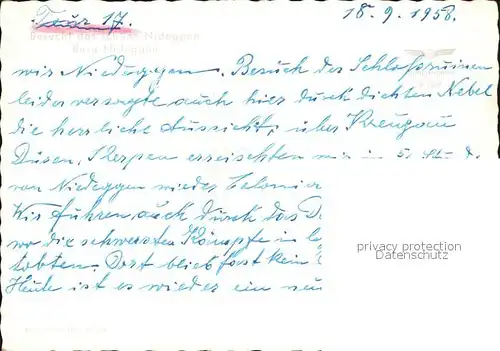 Tour 17.
18.9.1958.
Besucht das schöne Nideggen
Burg Nideggen
wir Nideggen. Besuch der Schloßruinen
leider versagte auch hier durch dichten Nebel
die herrliche Aussicht, über Kreuzau
Düren, Kerpen erreichten wir in 5/4 St. d.
von Nideggen wieder
Wir fuhren auch durch das
wo die schwersten Kämpfe in
tobten. Dort blieb fast kein
Heute ist es wieder ein
privacy protection
Datenschutz